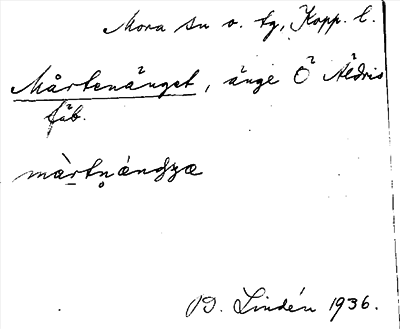 Mora sn o. tg, Kopp. l.
Mårtenänget, änge Ö Äldris
fäb.
màrtn̥ ándzæ
B. Lindén 1936.